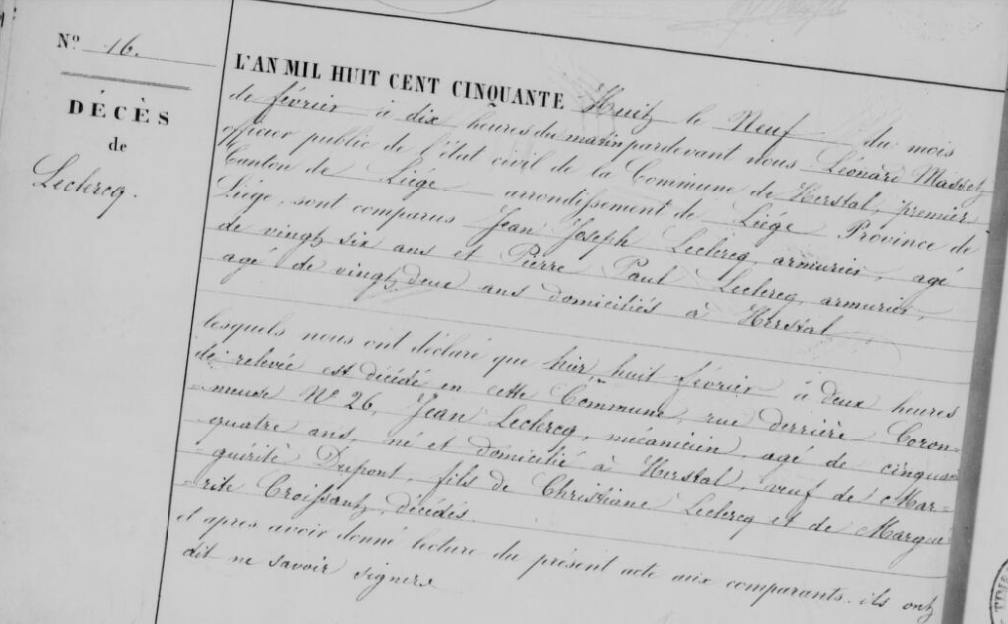 Nº 16.
DÉCÈS
de
Leclercq.
L'AN MIL HUIT CENT CINQUANTE Huit le Neuf du mois
de février à dix heures du matin pardevant nous Léonard Massetz
officier public de l'état civil de la Commune de Herstal, premier
Canton de Liége arrondissement de Liége Province de
Liége, sont comparus Jean Joseph Leclercq, armurier, agé
de vingt six ans et Pierre Paul Leclercq, armurier,
agé de vingt deux ans domiciliés à Herstal
lesquels nous ont déclaré que hier huit février à deux heures
de relevée est décédé en cette Commune, rue derrière Coron-
-meuse Nº 26, Jean Leclercq, mécanicien, agé de cinquan
quatre ans, né et domicilié à Herstal, veuf de Mar-
-guérite Dupont, fils de Christiane Leclercq et de Margué
-rite Croissant, décédés.
et après avoir donné lecture du présent acte aux comparants, ils ont
dit ne savoir signer